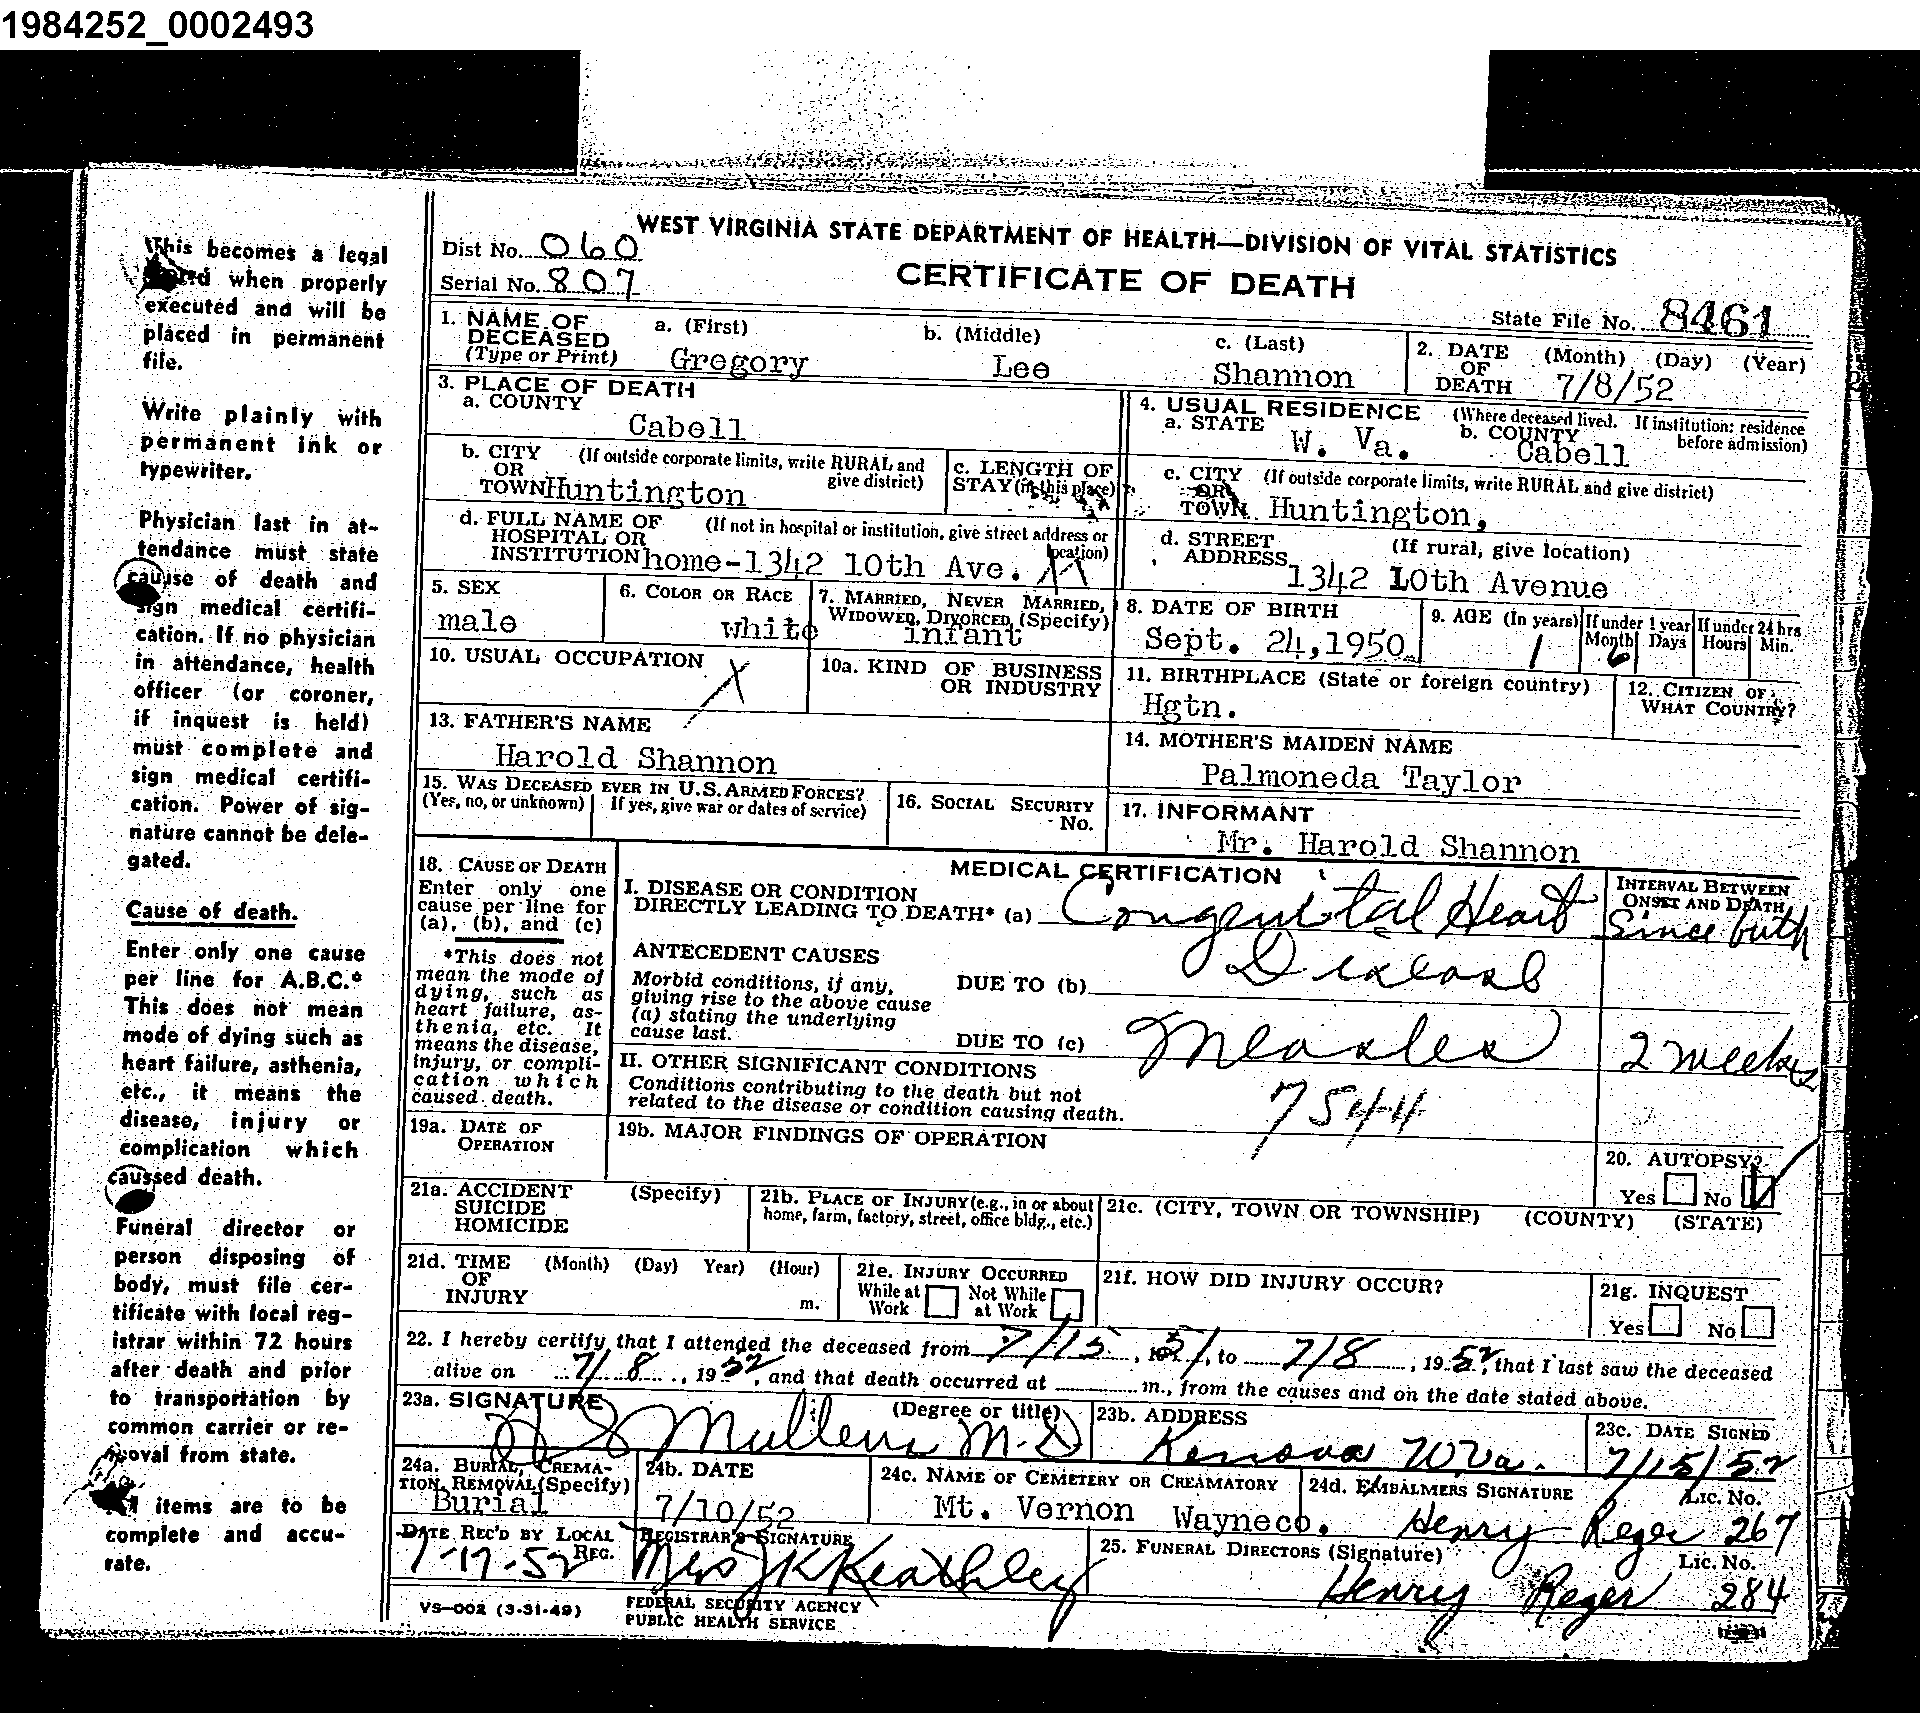 1984252_0002493
This becomes a legal
when properly
executed and will be
placed in permanent
file.
Write plainly with
permanent ink or
typewriter.
Physician last in at-
tendance must state
cause of death and
sign medical certifi-
cation. If no physician
in attendance, health
officer (or coroner,
if inquest is held)
must complete and
sign medical certifi-
cation. Power of sig-
nature cannot be dele-
gated.
Cause of death.
Enter only one cause
per line for A.B.C.*
This does not mean
mode of dying such as
heart failure, asthenia,
etc., it means the
disease, injury or
complication which
caussed death.
Funeral director or
person disposing of
body, must file cer-
tificate with local reg-
istrar within 72 hours
after death and prior
to transportation by
common carrier or re-
moval from state.
items are to be
complete and accu-
rate.
WEST VIRGINIA STATE DEPARTMENT OF HEALTH—DIVISION OF VITAL STATISTICS
Dist No. 060
CERTIFICATE OF DEATH
Serial No. 807
State File No. 8461
1. NAME OF DECEASED (Type or Print) a. (First) b. (Middle) c. (Last)
Gregory Lee Shannon
2. DATE OF DEATH (Month) (Day) (Year)
7/8/52
3. PLACE OF DEATH
a. COUNTY
Cabell
4. USUAL RESIDENCE (Where deceased lived. If institution: residence before admission)
a. STATE W. Va. b. COUNTY Cabell
b. CITY OR TOWN (If outside corporate limits, write RURAL and give district)
Huntington
c. LENGTH OF STAY (in this place)
c. CITY OR TOWN (If outside corporate limits, write RURAL and give district)
Huntington,
d. FULL NAME OF HOSPITAL OR INSTITUTION (If not in hospital or institution, give street address or location)
home-1342 10th Ave.
d. STREET ADDRESS (If rural, give location)
1342 10th Avenue
5. SEX
male
6. COLOR OR RACE
white
7. MARRIED, NEVER MARRIED, WIDOWED, DIVORCED (Specify)
infant
8. DATE OF BIRTH
Sept. 24,1950
9. AGE (In years) If under 1 year If under 24 hrs
Month Days Hours Min.
1 6
10. USUAL OCCUPATION
X
10a. KIND OF BUSINESS OR INDUSTRY
11. BIRTHPLACE (State or foreign country)
Hgtn.
12. CITIZEN OF WHAT COUNTRY?
13. FATHER'S NAME
Harold Shannon
14. MOTHER'S MAIDEN NAME
Palmoneda Taylor
15. WAS DECEASED EVER IN U.S. ARMED FORCES?
(Yes, no, or unknown) If yes, give war or dates of service)
16. SOCIAL SECURITY No.
17. INFORMANT
Mr. Harold Shannon
18. CAUSE OF DEATH
Enter only one
cause per line for
(a), (b), and (c)
*This does not
mean the mode of
dying, such as
heart failure, as-
thenia, etc. It
means the disease,
injury, or compli-
cation which
caused death.
MEDICAL CERTIFICATION
I. DISEASE OR CONDITION
DIRECTLY LEADING TO DEATH* (a) Congenital Heart
INTERVAL BETWEEN ONSET AND DEATH
Since birth
ANTECEDENT CAUSES
Morbid conditions, if any,
giving rise to the above cause
(a) stating the underlying
cause last.
DUE TO (b) Disease
DUE TO (c) Measles 2 weeks
II. OTHER SIGNIFICANT CONDITIONS
Conditions contributing to the death but not
related to the disease or condition causing death.
7544
19a. DATE OF OPERATION
19b. MAJOR FINDINGS OF OPERATION
20. AUTOPSY?
Yes No
21a. ACCIDENT SUICIDE HOMICIDE (Specify)
21b. PLACE OF INJURY (e.g., in or about home, farm, factory, street, office bldg., etc.)
21c. (CITY, TOWN OR TOWNSHIP) (COUNTY) (STATE)
21d. TIME OF INJURY (Month) (Day) Year) (Hour) m.
21e. INJURY OCCURRED
While at Work Not While at Work
21f. HOW DID INJURY OCCUR?
21g. INQUEST
Yes No
22. I hereby certify that I attended the deceased from 7/15, 51, to 7/8, 1952, that I last saw the deceased
alive on 7/8, 1952, and that death occurred at m., from the causes and on the date stated above.
23a. SIGNATURE (Degree or title)
Mullens M.D
23b. ADDRESS
Kenova W.Va.
23c. DATE SIGNED
7/15/52
24a. BURIAL, CREMATION, REMOVAL (Specify)
Burial
24b. DATE
7/10/52
24c. NAME OF CEMETERY OR CREAMATORY
Mt. Vernon Wayneco.
24d. EMBALMERS SIGNATURE Lic. No.
Henry Reger 267
DATE REC'D BY LOCAL REG.
7-17-52
REGISTRAR'S SIGNATURE
Mrs JK Keathley
25. FUNERAL DIRECTORS (Signature) Lic. No.
Henry Reger 284
VS-002 (3-31-49)
FEDERAL SECURITY AGENCY
PUBLIC HEALTH SERVICE